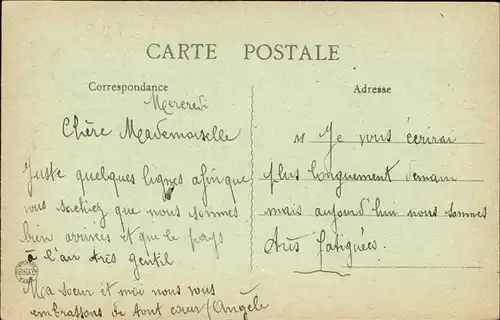 CARTE POSTALE
Correspondance
Adresse
Mercredi
Chère Mademoiselle
Juste quelques lignes afin que
vous sachiez que nous sommes
bien arrivées et que le pays
à l'air très gentil.
Ma soeur et moi nous vous
embrassons de tout coeur/Angèle
M Je vous écrirai
plus longuement demain
mais aujourd'hui nous sommes
très fatiguées.